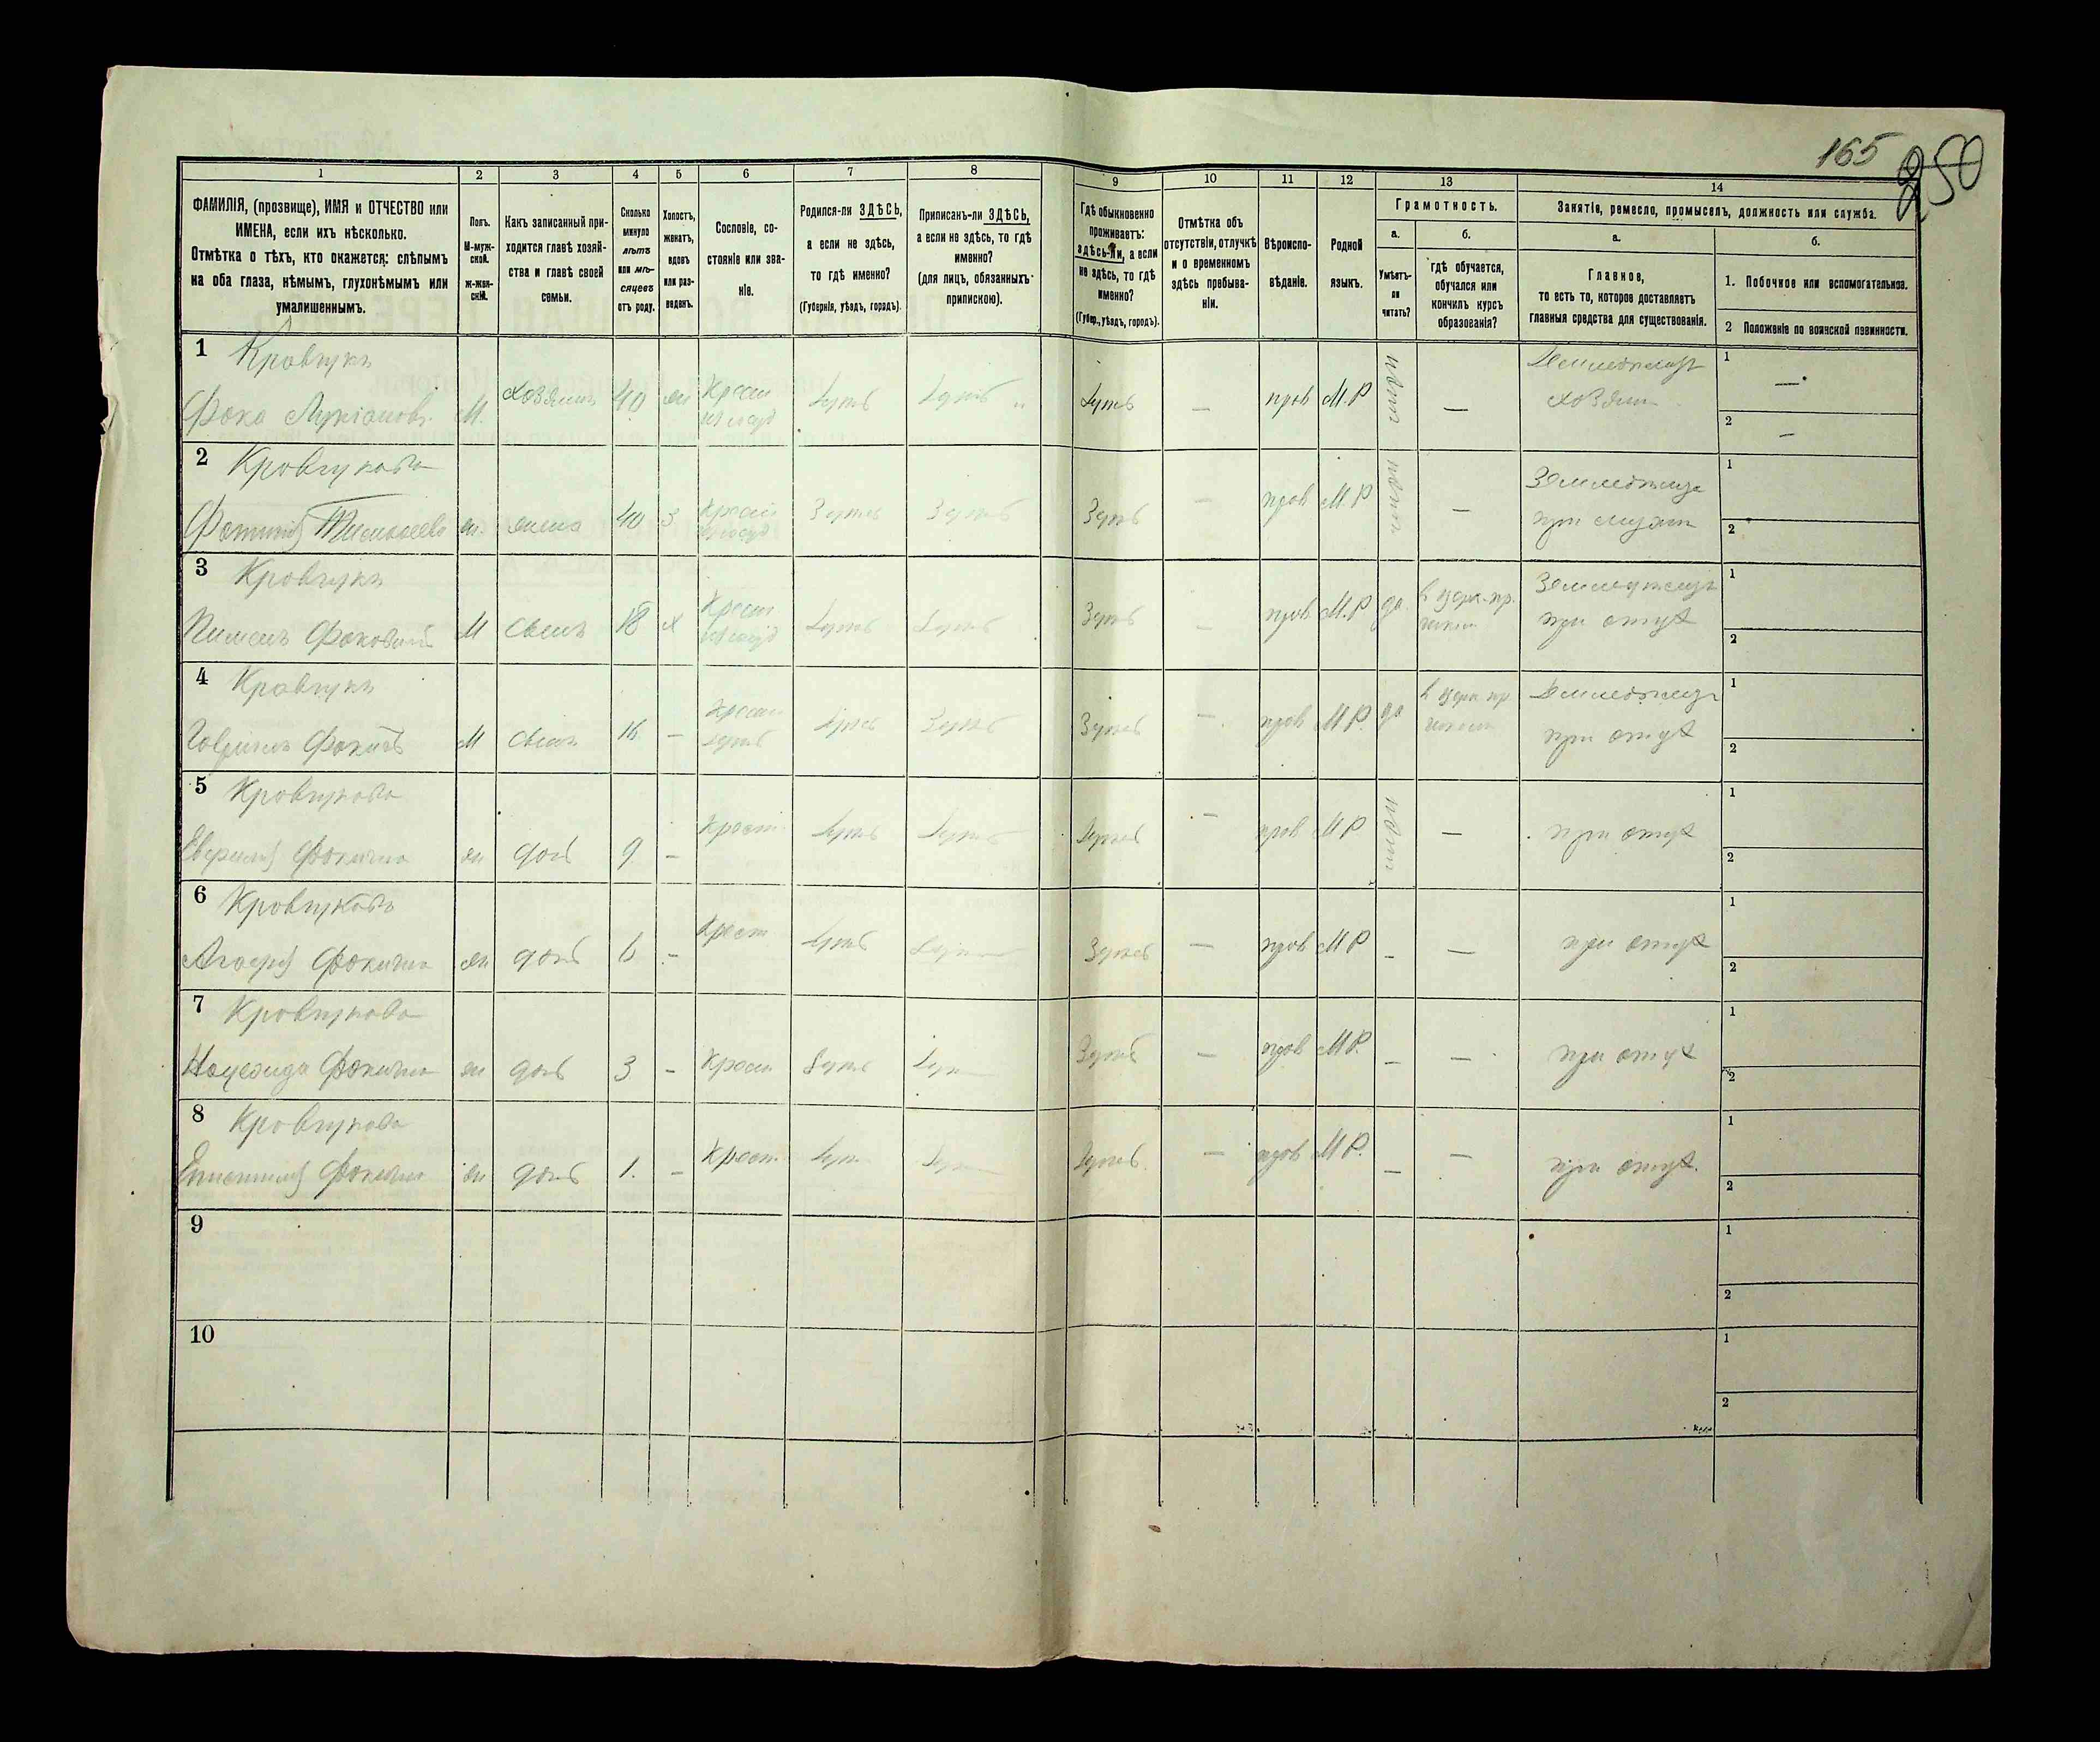 165
250
1
2
3
4
5
6
7
8
9
10
11
12
13
14
ФАМИЛІЯ, (прозвище), ИМЯ и ОТЧЕСТВО или
ИМЕНА, если ихъ нѣсколько.
Отмѣтка о тѣхъ, кто окажется: слѣпымъ
на оба глаза, нѣмымъ, глухонѣмымъ или
умалишеннымъ.
Полъ.
М-муж-
ской.
ж-жен-
скій.
Какъ записанный при-
ходится главѣ хозяй-
ства и главѣ своей
семьи.
Сколько
минуло
лѣтъ
или мѣ-
сяцевъ
отъ роду.
Холостъ,
женатъ,
вдовъ
или раз-
веденъ.
Сословіе, со-
стояніе или зва-
ніе.
Родился-ли ЗДѢСЬ,
а если не здѣсь,
то гдѣ именно?
(Губернія, уѣздъ, городъ).
Приписанъ-ли ЗДѢСЬ,
а если не здѣсь, то гдѣ
именно?
(для лицъ, обязанныхъ
припискою).
Гдѣ обыкновенно
проживаетъ:
здѣсь-ли, а если
не здѣсь, то гдѣ
именно?
(Губер., уѣздъ, городъ).
Отмѣтка объ
отсутствіи, отлучкѣ
и о временномъ
здѣсь пребыва-
ніи.
Вѣроиспо-
вѣданіе.
Родной
языкъ.
Грамотность.
а.
Умѣетъ-
ли
читать?
б.
гдѣ обучается,
обучался или
кончилъ курсъ
образованія?
Занятіе, ремесло, промыселъ, должность или служба.
а.
Главное,
то есть то, которое доставляетъ
главныя средства для существованія.
б.
1. Побочное или вспомогательное.
2 Положеніе по воинской повинности.
1 Кравчукъ
Фока Лукіановъ М. хозяинъ 40 ж Крест здѣсь здѣсь здѣсь — прав М.Р нѣтъ — Земледѣлецъ
хозяин
1 —
2 —
2 Кравчукова
жена 40 З Крест здѣсь здѣсь здѣсь — прав М.Р нѣтъ —
при мужѣ
1
2
3 Кравчукъ
Пименъ Фоковъ М сынъ 18 х Крест здѣсь здѣсь здѣсь — прав М.Р да в церк-пр.
школѣ Земледѣлецъ
при отцѣ
1
2
4 Кравчукъ
Гавріилъ Фокинъ М сынъ 16 — Крест здѣсь здѣсь здѣсь — прав М.Р. да в церк пр.
школѣ Земледѣлецъ
при отцѣ
1
2
5 Кравчукова
Фокина ж дочь 9 — Крест здѣсь здѣсь здѣсь — прав М Р нѣтъ — при отцѣ
1
2
6 Кравчукова
Фокина ж дочь 6 — Крест здѣсь здѣсь здѣсь — прав М Р — — при отцѣ
1
2
7 Кравчукова
Надежда Фокина ж дочь 3 — Крест здѣсь здѣсь здѣсь — прав М Р. — — при отцѣ
1
2
8 Кравчукова
Фокина ж дочь 1. — Крест здѣсь здѣсь здѣсь — прав М Р. — — при отцѣ.
1
2
9
1
2
10
1
2